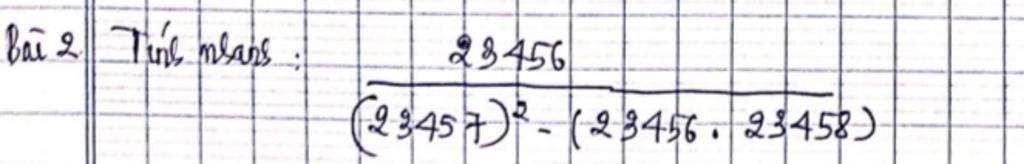 Bài 2. Tính nhanh : 23456
(23457)² - (23456 . 23458)